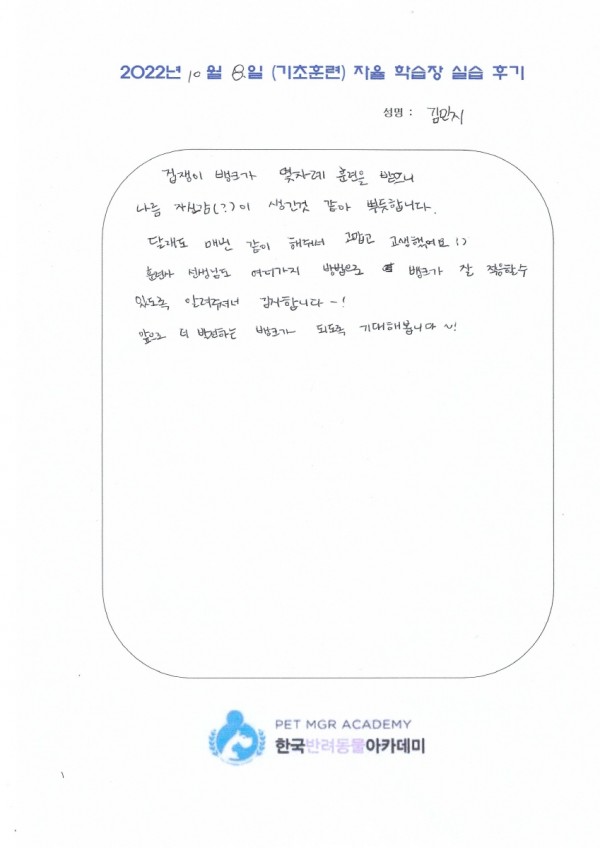 2022년 10월 8일 (기초훈련) 자율 학습장 실습 후기
성명 : 김민지
겁쟁이 뱅크가 몇차례 훈련을 받으니
나름 자신감(?)이 생긴것 같아 뿌듯합니다.
달재도 매번 같이 해주셔 고맙고 고생했어요!)
훈련사 선생님도 여러가지 방법으로 뱅크가 잘 적응할수
있도록 알려주셔서 감사합니다~!
앞으로 더 발전하는 뱅크가 되도록 기대해봅니다~!
PET MGR ACADEMY
한국반려동물아카데미